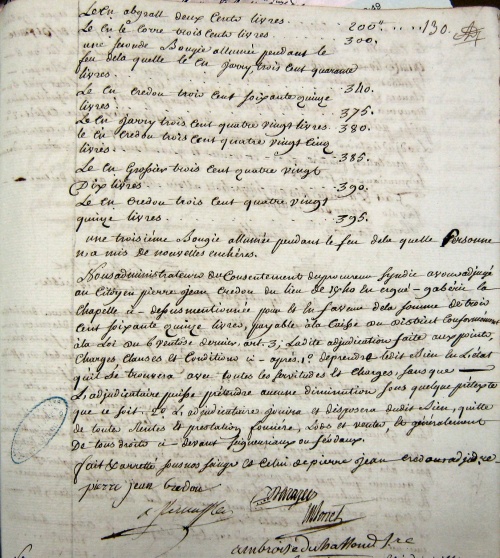 Le Cn abyvall deux Cents livres . . . 200# . . . . 130.
Le Cn le Corre trois Cents livres . . . . 300.
une seconde Bougie allumée pendant le
feu dela quelle le Cn Jarry trois Cent quarante
livres . . . . 340.
Le Cn Credou trois Cent soixante quinze
livres . . . . 375.
Le Cn Jarry trois Cent quatre vingt livres. 380.
le Cn Credou trois Cent quatre vingt Cinq
livres . . . . 385.
Le Cn Grossier trois Cent quatre vingt
Dix livres . . . . 390.
Le Cn Credou trois Cent quatre vingt
quinze livres . . . . 395.
une troisiéme Bougie allumée pendant le feu dela quelle Personne
n'a mis de nouvelles enchéres.
Nous administrateurs du Consentement du procureur Syndic avons adjugé
au Citoyen pierre Jean Credou du lieu de en Ergué-gaberic la
Chapelle ci-dessus mentionnée pour et en faveur dela somme de trois
Cent soixante quinze livres, payable à la Caisse du District Conformement
à la Loi du 6 ventose dernier art. 3; Ladite adjudication faite aux points,
Charges, Clauses et Conditions ci-aprés. 1° de prendre ledit bien en L'etat
qu'il se trouvera avec toutes les servitudes et Charges, sans que
L'adjudicataire puisse prétendre aucune diminution sous quelque prétexte
que ce soit. 2° L'adjudicataire jouira et disposera dudit bien, quitte
de toute Rentes et prestation fonciére, Lods et ventes, et généralement
De tous droits ci-devant seigneuriaux ou féodaux.
fait et arretté sous nos seings et Celui de pierre Jean Credou adjdre
pierre jean Credou